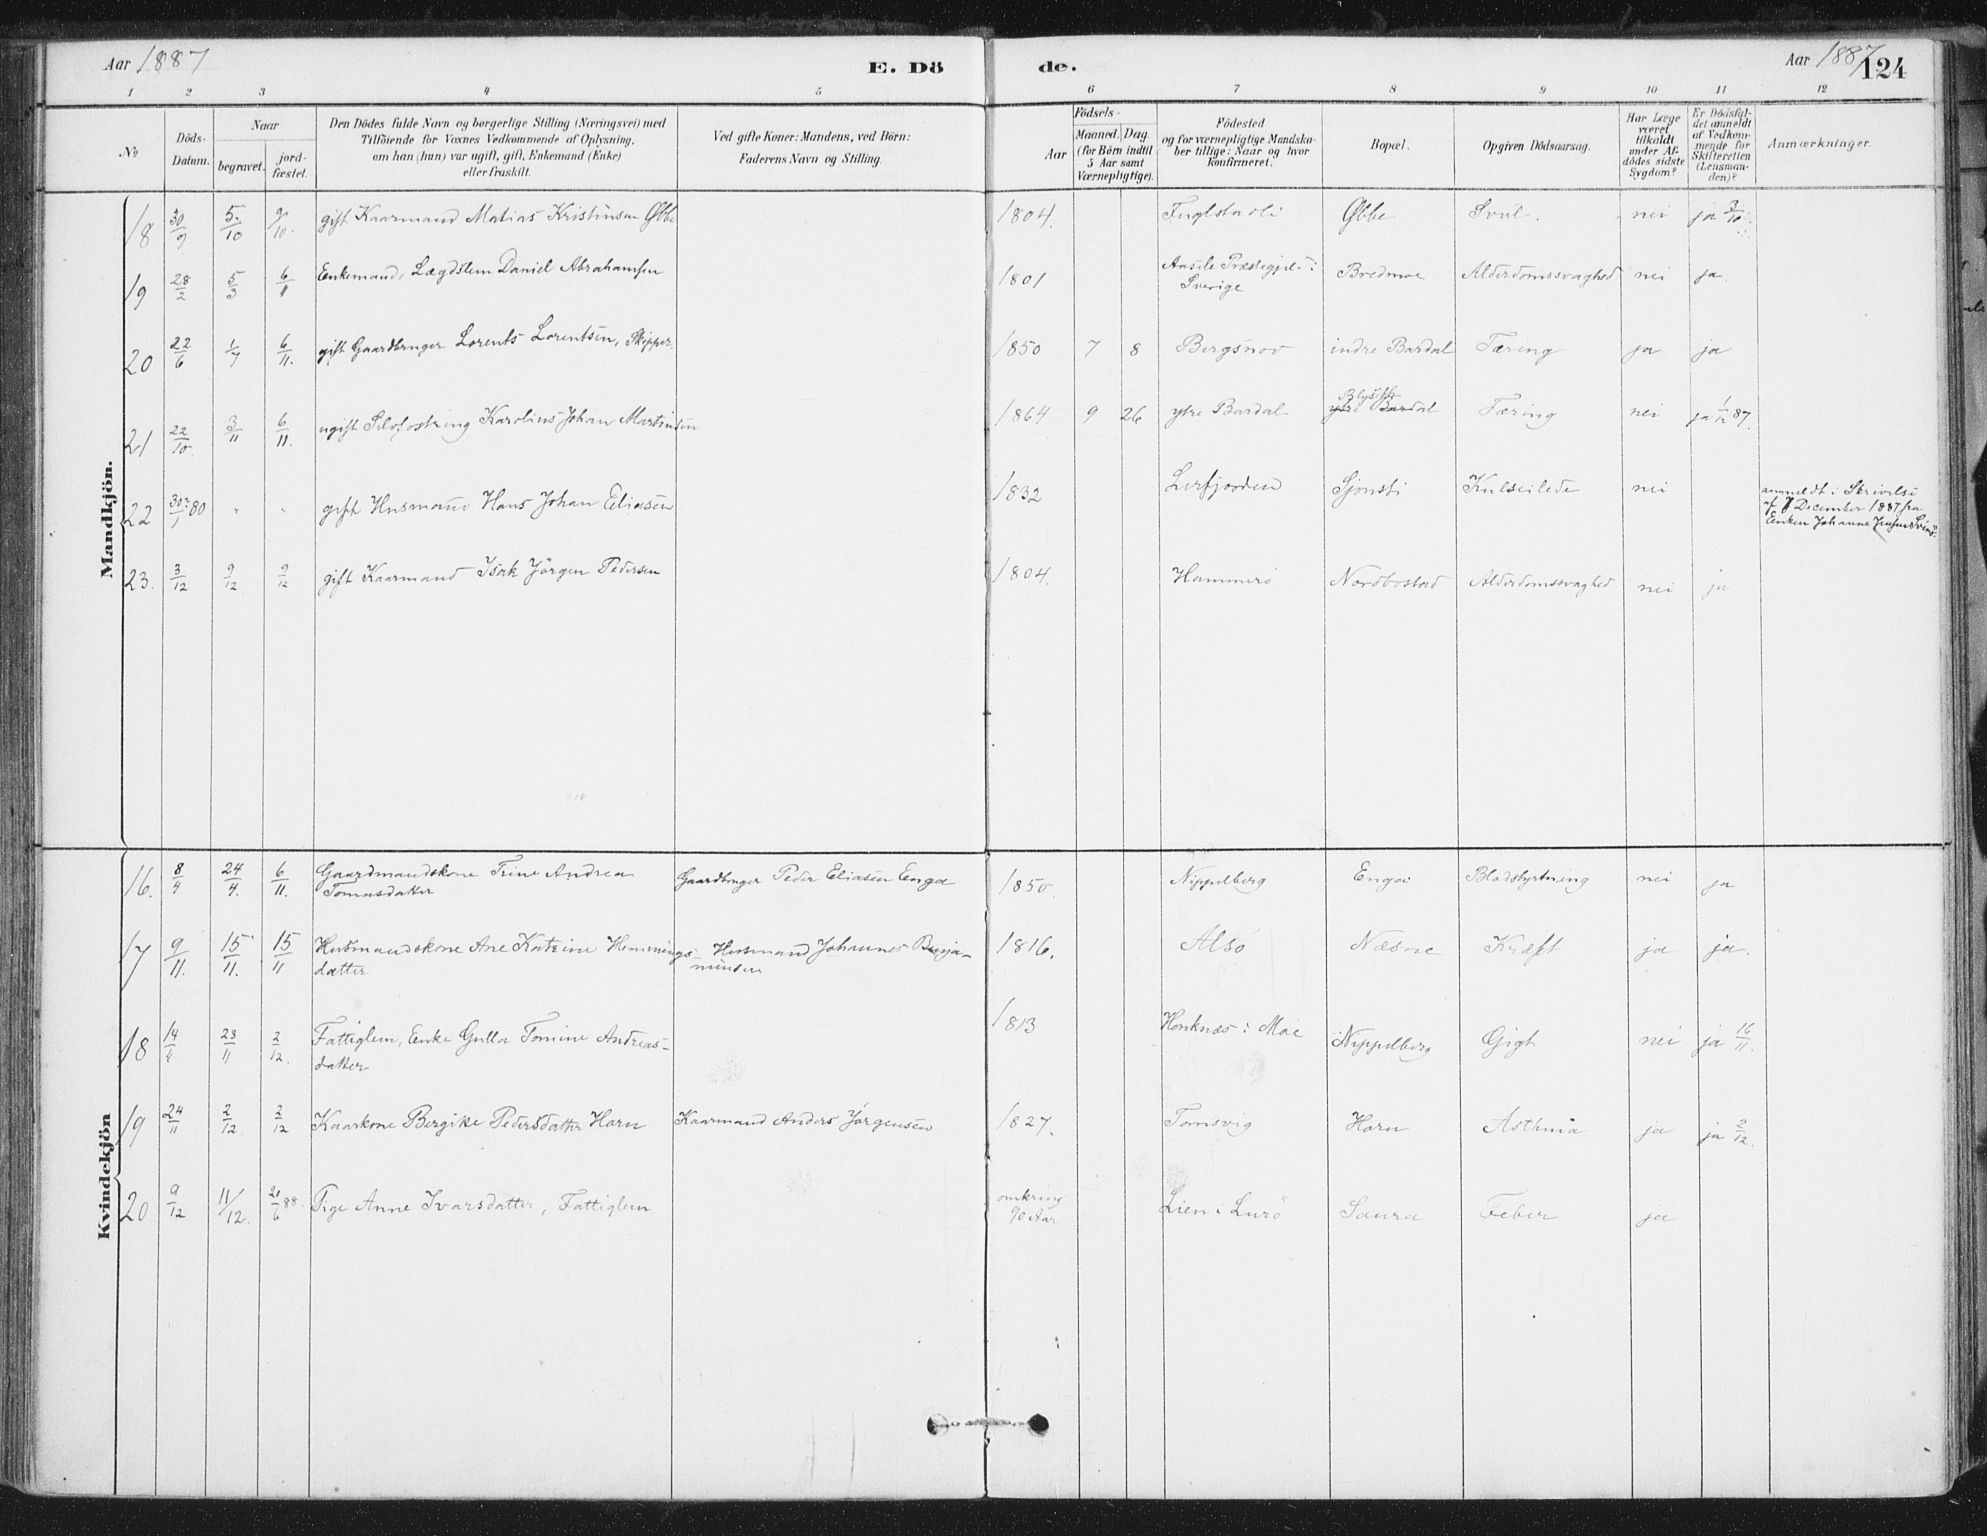 Aar 1887
E. Dö
de.
Aar 1887
124
1 2 3 4 5 6 7 8 9 10 11 12
No
Döds-
Datum.
Naar
begravet.
jord-
fæstet.
Den Dödes fulde Navn og borgerlige Stilling (Næringsvei) med
Tilföiende for Voxnes Vedkommende af Oplysning,
om han (hun) var ugift, gift, Enkemand (Enke)
eller fraskilt.
Ved gifte Koner: Mandens, ved Börn:
Faderens Navn og Stilling.
Födsels-
Aar
Maaned. Dag.
(for Börn indtil
5 Aar samt
Værnepligtige).
Födested
og for værnepligtige Mandska-
ber tillige: Naar og hvor
konfirmeret.
Bopæl.
Opgiven Dödsaarsag.
Har Læge
været
tilkaldt
under Af-
dödes sidste
Sygdom?
Er Dödsfal-
det anmeldt
af Vedkom-
mende for
Skifteretten
(Lensman-
den)?
Anmærkninger.
Mandkjön.
18 30/9 5/10 9/10. gift Kaarmand Matias Kristinsen Ybbe 1804. Ybbe nei ja 3/10
19 28/2 5/3 6/11 Enkemand, Lægdslem Daniel Abrahamsen 1801 Aasele Præstegjeld i
Sverige Bredmoe Alderdomssvaghed nei ja.
20 22/6 1/7 6/11. gift Gaardbruger Lorents Lorentsen, Skipper. 1850 7 8 Bergsnov indre Bardal Tæring ja ja
21 22/10. 3/11 6/11. ugift Karolius Johan Martinsen 1864 9 26 ytre Bardal ytre Bardal Tæring nei ja 1/12 87.
22 30?/1 80 " " gift Husmand Hans Johan Eliasen 1832 Leirfjorden Sjonsti Kulseilede nei
anmeldt i Skrivelse
af 7 December 1887 fra
Enken Johanne
23. 3/12 9/12 9/12 gift Kaarmand Isak Jörgen Pedersen 1804. Hammerö Nordbostad Alderdomssvaghed nei ja
Kvindekjön
16. 8/4 24/4. 6/11. Gaardmandskone Trine Andrea
Tomasdatter Gaardbruger Peder Eliasen Enga 1850. Nippelberg Enga Blodstyrtning nei ja
17 9/11. 15/11. 15/11 Husmandskone Ane Katrine Hemmings-
datter Husmand Johannes Benja-
minsen 1816. Alsö Næsne Kræft ja ja.
18 14/11 23/11 2/12. Fattiglem, Enke Gulla Tomine Andreas-
datter 1813 Honknæs i Moe Nippelberg Gigt nei ja 16/11.
19 24/11 2/12. 2/12 Kaarkone Bergike Pedersdatter Horn Kaarmand Anders Jörgensen 1827. Tomsvig Horn Asthma ja ja 2/12.
20 9/12 11/12. 20/6 88. Pige Anne Ivarsdatter, Fattiglem omkring
90 Aar Lien i Lurö Saura Feber ja